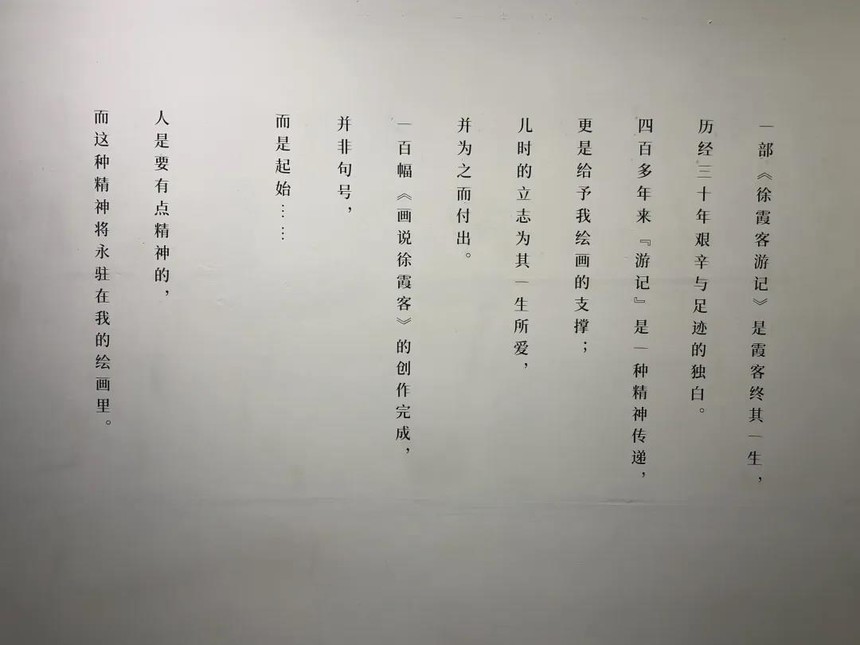 一部《徐霞客游记》是霞客终其一生，
历经三十年艰辛与足迹的独白。
四百多年来『游记』是一种精神传递，
更是给予我绘画的支撑；
儿时的立志为其一生所爱，
并为之而付出。
一百幅《画说徐霞客》的创作完成，
并非句号，
而是起始……
人是要有点精神的，
而这种精神将永驻在我的绘画里。